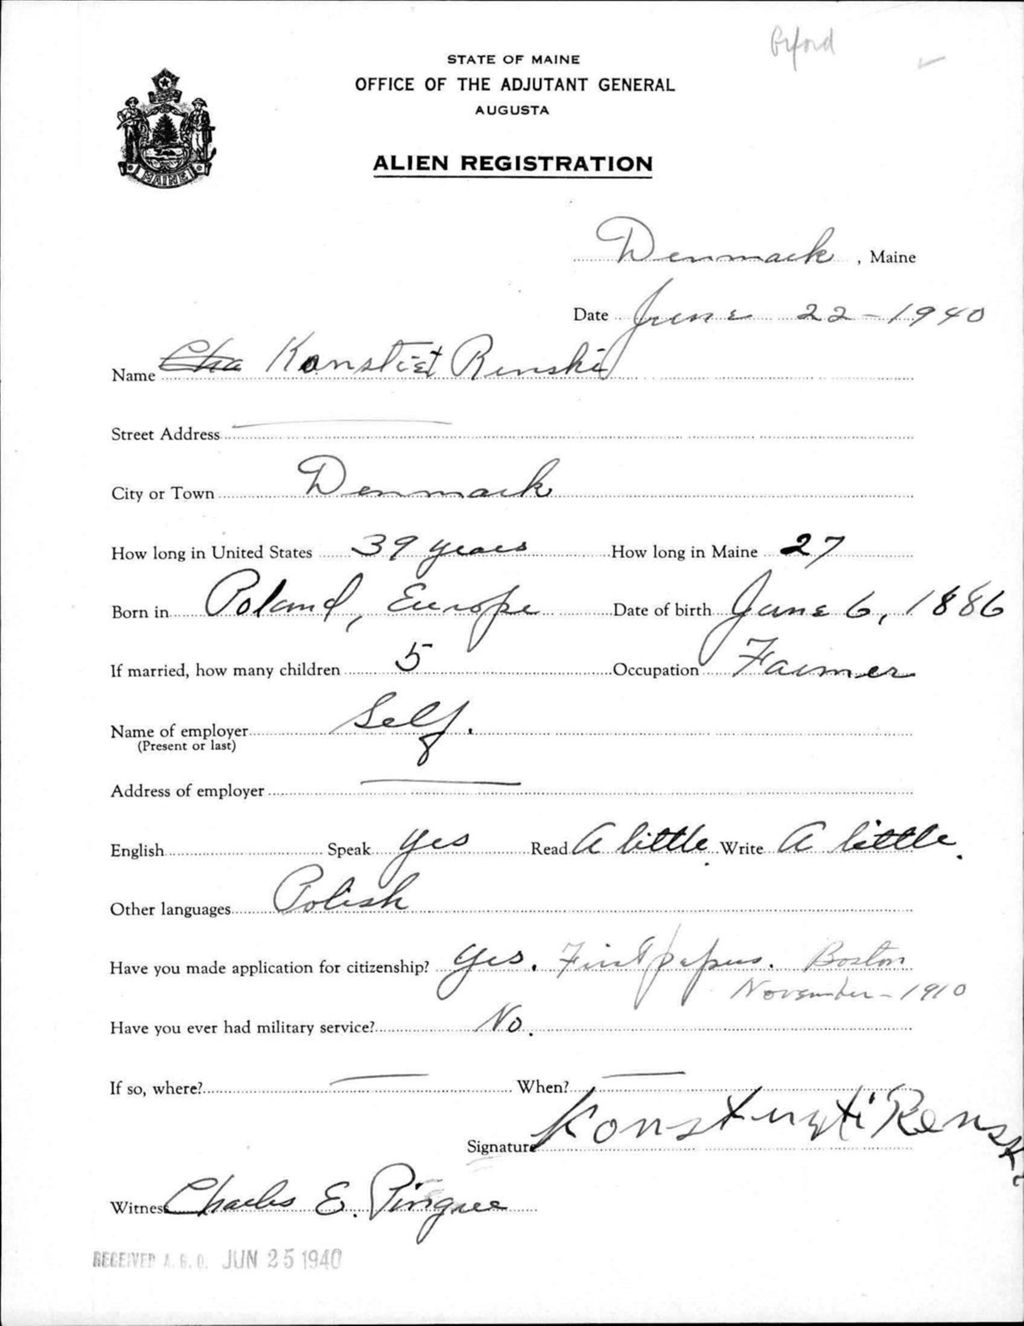 Oxford
STATE OF MAINE
OFFICE OF THE ADJUTANT GENERAL
AUGUSTA
MAINE
ALIEN REGISTRATION
Denmark, Maine
Date June 22-1940
Name Cha Konstist Renski
Street Address
City or Town Denmark
How long in United States 39 years How long in Maine 27
Born in Poland, Europe Date of birth June 6, 1886
If married, how many children 5 Occupation Farmer
Name of employer Self.
(Present or last)
Address of employer
English Speak Yes Read A little. Write A little.
Other languages Polish
Have you made application for citizenship? Yes. First papers. Boston
November-1910
Have you ever had military service? No.
If so, where? When?
Signature Konstuyti Renski
Witness Charles E. Pingree
RECEIVED A.G.O. JUN 25 1940